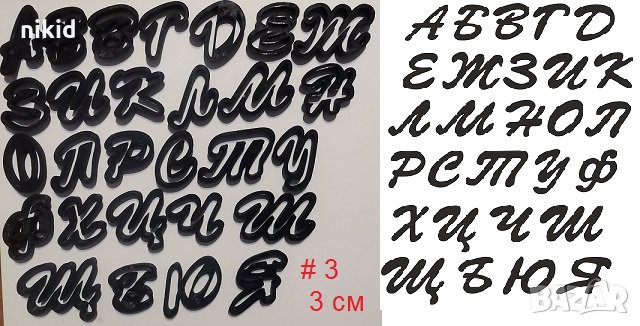 nikid
А Б В Г Д Е Ж
З И К Л М Н
О П Р С Т У
Ф Х Ц Ч Ш
Щ Ъ Ю Я
# 3
3 см
А Б В Г Д
Е Ж З И К
Л М Н О П
Р С Т У Ф
Х Ц Ч Ш
Щ Ъ Ю Я
BAZAR